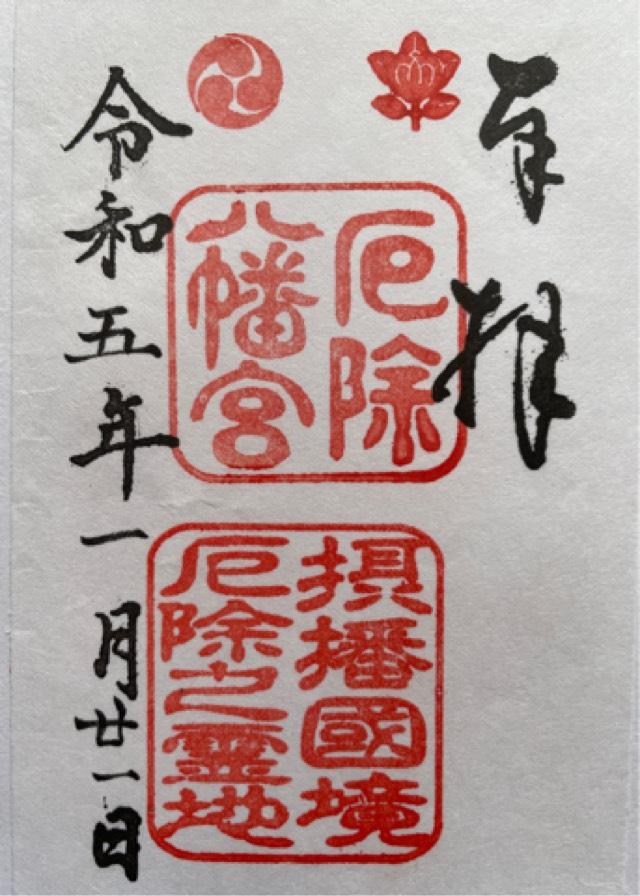 奉拝
厄除
八幡宮
摂播國境
厄除之霊地
令和五年一月廿一日